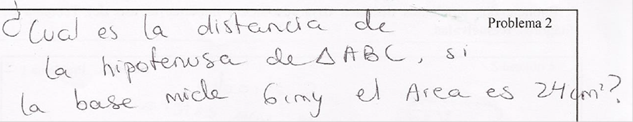 Problema 2
¿Cual es la distancia de
la hipotenusa de △ABC, si
la base mide 6cm y el Area es 24cm²?